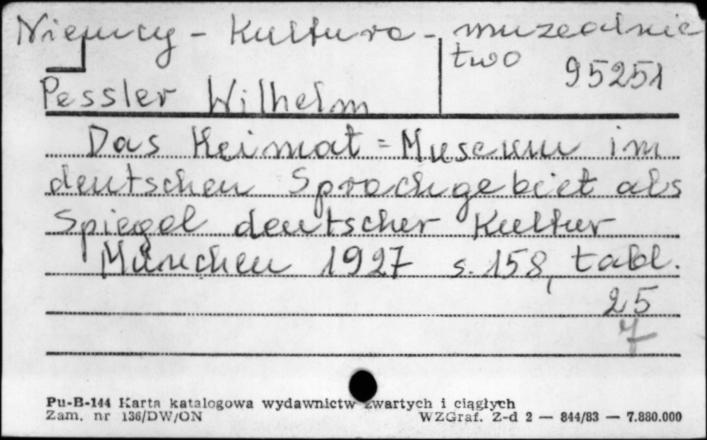 Niemcy - Kultura - muzealnic
two
95251
Pessler Wilhelm
Das Heimat=Museum im
deutschen Sprachgebiet als
Spiegel deutscher Kultur
München 1927 s. 158, tabl.
25
7
Pu-B-144 Karta katalogowa wydawnictw zwartych i ciągłych
Zam. nr 136/DW/ON WZGraf. Z-d 2 — 844/83 — 7.880.000